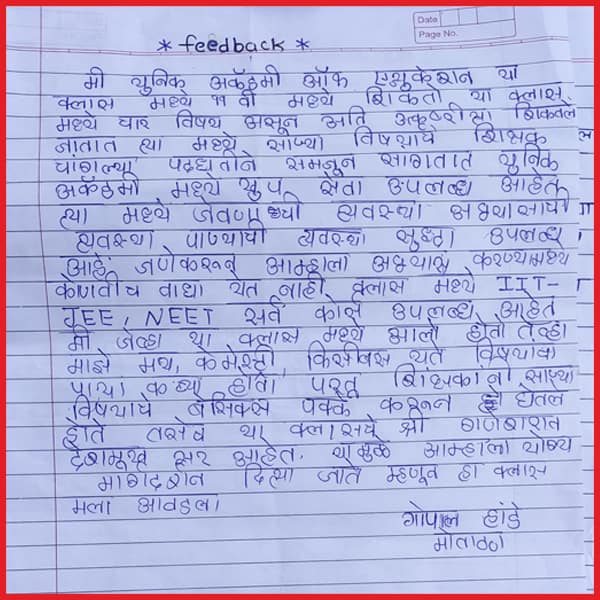 Date
Page No.
* feedback *
मी युनिक अकॅडमी ऑफ एज्युकेशन या
क्लास मध्ये ११ वी मध्ये शिकतो या क्लास
मध्ये चार विषय असून अति उत्कृष्टरीत्या शिकवले
जातात त्या मध्ये साऱ्या विषयाचे शिक्षक
चांगल्या पद्धतीने समजून सांगतात युनिक
अकॅडमी मध्ये खुप सेवा उपलब्ध आहेत
त्या मध्ये जेवणाची व्यवस्था अभ्यासाची
व्यवस्था पाण्याची व्यवस्था सुध्दा उपलब्ध
आहे. जणेकरून आम्हाला अभ्यास करण्यामध्ये
कोणतीच बाधा येत नाही क्लास मध्ये IIT-
JEE, NEET सर्व कोर्स उपलब्ध आहेत
मी जेव्हा या क्लास मध्ये आलो होतो तेव्हा
माझे मॅथ, केमेस्ट्री, फिजीक्स येते विषयाचा
पाया कच्चा होता परंतू शिक्षकांनी साऱ्या
विषयाचे बेसिक्स पक्के करून घेतले
होते तसेच या क्लासचे श्री गणेशराव
देशमुख सर आहेत. यामुळे आम्हाला योग्य
मार्गदर्शन दिल्या जाते म्हणून हा क्लास
मला आवडला.
गोपाल हांडे
मोताळा